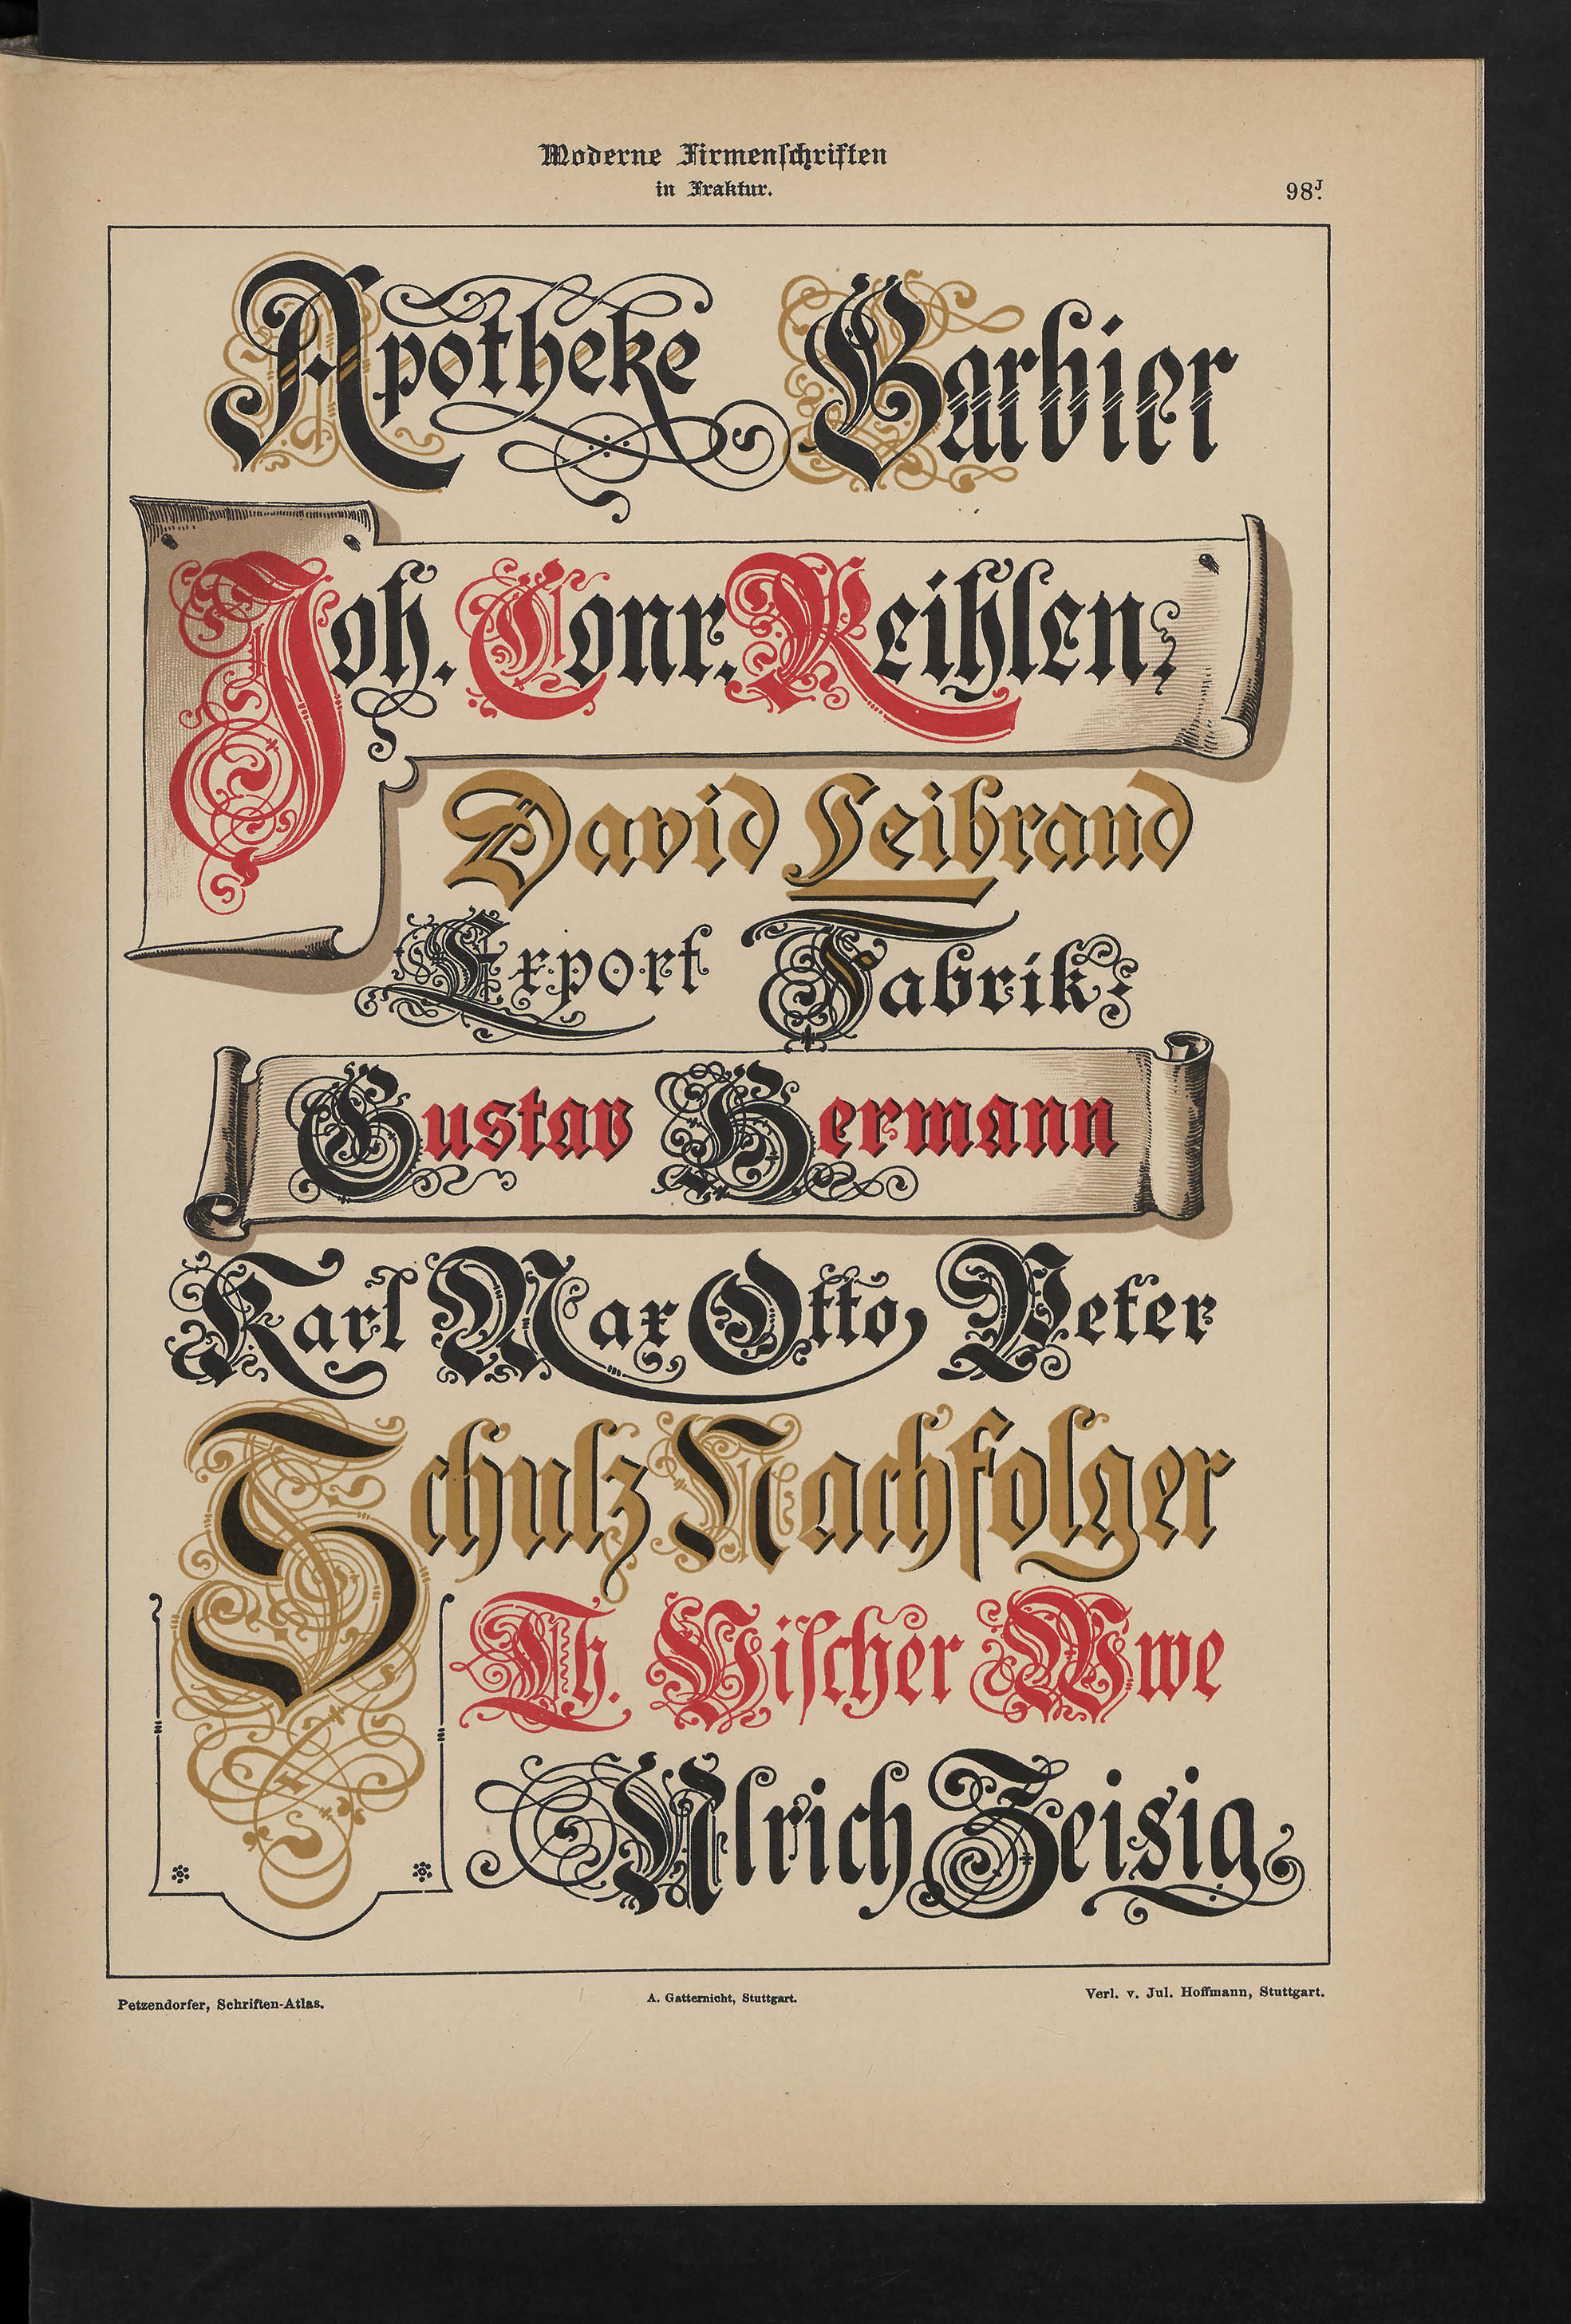 Moderne Firmenſchriften
in Fraktur.
98J.
Apotheke Barbier
Joh. Conr. Reihlen.
David Leibrand
Export Fabrik
Gustav Hermann
Karl Max Otto Peter
Schulz Nachfolger
Th. Viſcher Wwe
Ulrich Zeisig
Petzendorfer, Schriften-Atlas.
A. Gatternicht, Stuttgart.
Verl. v. Jul. Hoffmann, Stuttgart.